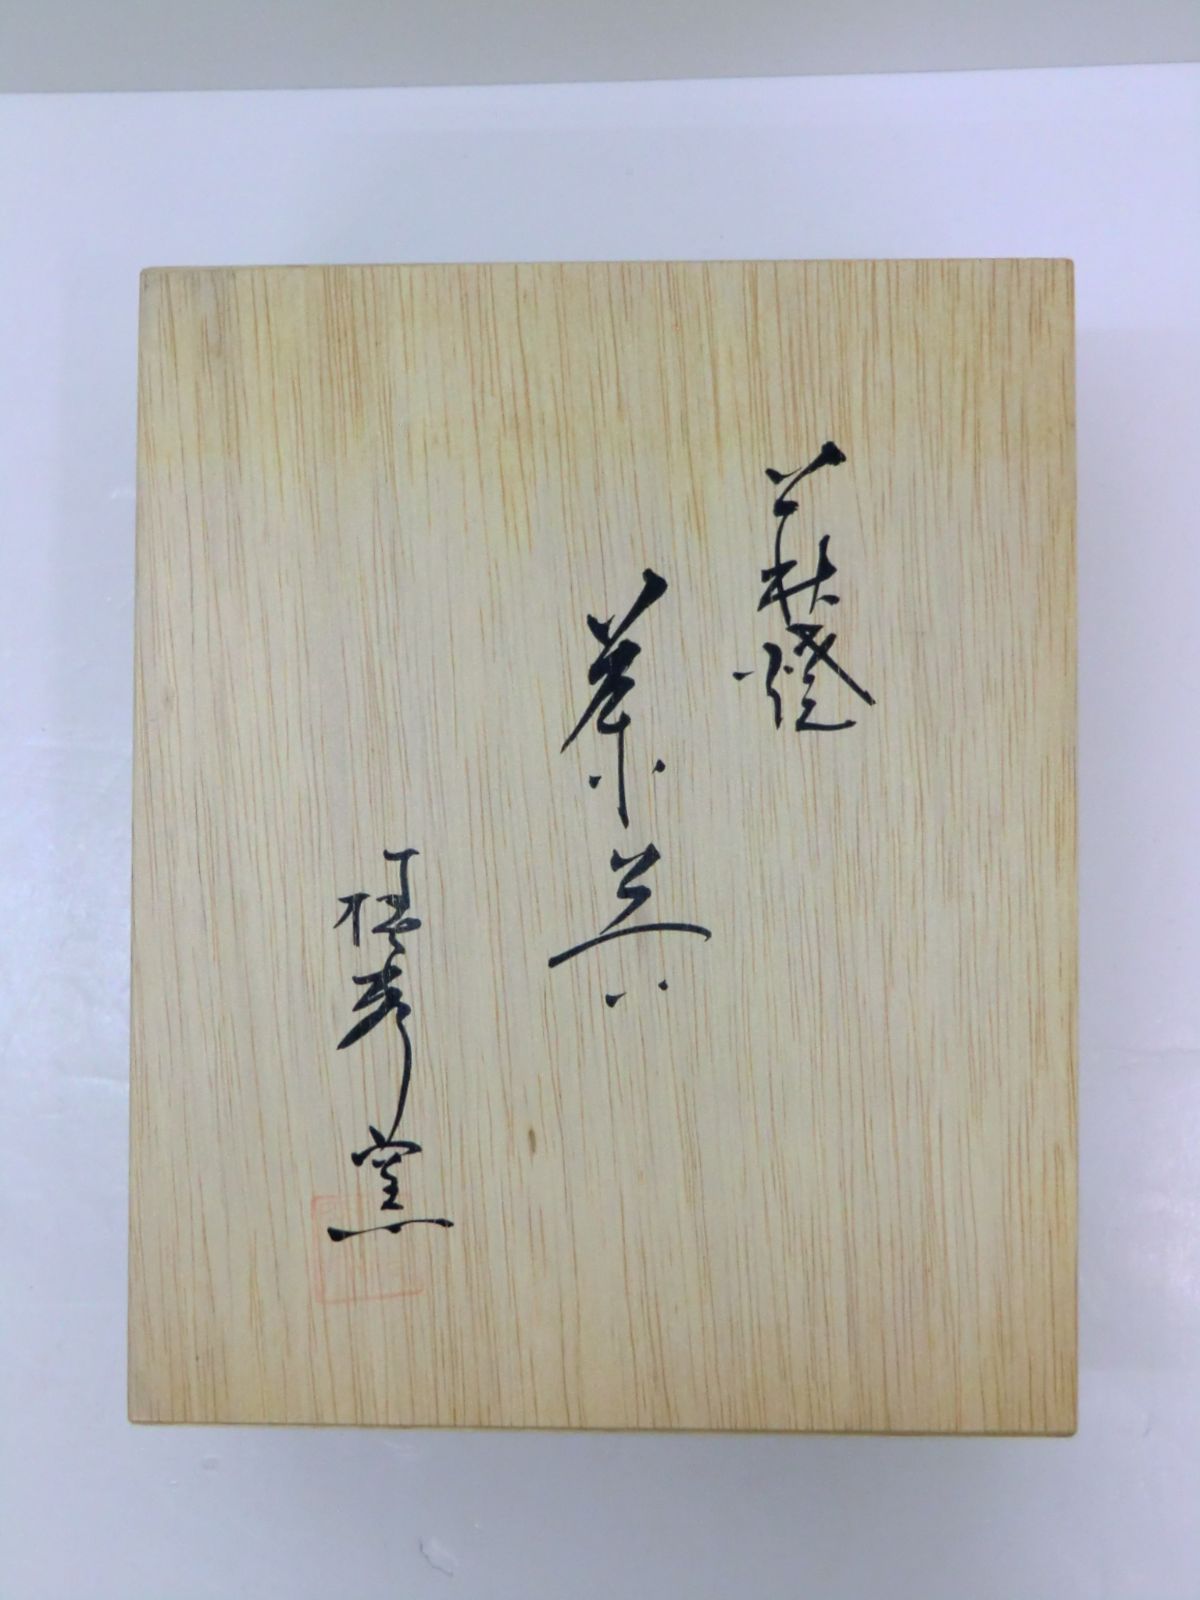 萩焼
茶器
椿秀窯